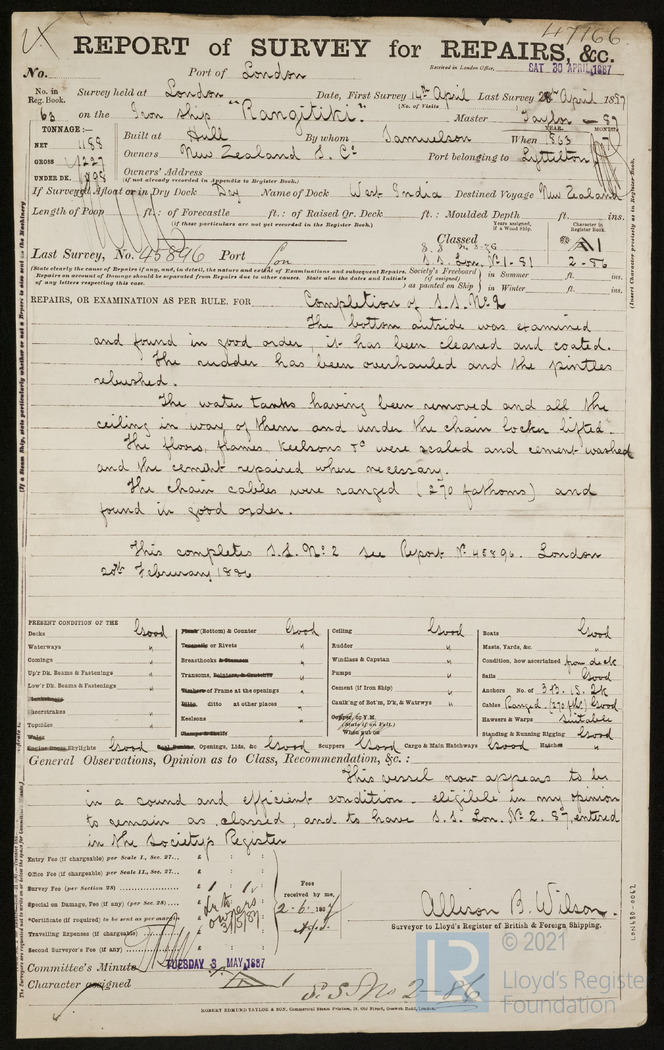 47166
REPORT of SURVEY for REPAIRS, &c.
No. Port of London
Received in London Office, SAT 30 APRIL 1887
No. in Reg. Book. Survey held at London Date, First Survey 14th April Last Survey 28th April 1887
(No. of Visits
63 on the Iron ship "Rangitiki." Master Taylor - 87
TONNAGE:— Built at Hull By whom Samuelson When 1863 7
YEAR. MONTH.
NET 1188
GROSS 1227 Owners New Zealand S. Co Port belonging to Lyttelton
UNDER DK. 1098 Owners' Address
(if not already recorded in Appendix to Register Book.)
If Surveyed Afloat or in Dry Dock Dry Name of Dock West India Destined Voyage New Zealand
Length of Poop ft.: of Forecastle ft.: of Raised Qr. Deck ft.: Moulded Depth ft. ins.
(if these particulars are not yet recorded in the Register Book.)
Years assigned, if a Wood Ship.
Character in Register Book.
Classed A1
Last Survey, No. 45896 Port Lon S.S. Lon. No 1-81 2-86
(State clearly the cause of Repairs if any, and, in detail, the nature and extent of Examinations and subsequent Repairs.
Repairs on account of Damage should be separated from Repairs due to other causes. State also the dates and initials
of any letters respecting this case.
Society's Freeboard (if assigned) as painted on Ship in Summer ft. ins.
in Winter ft. ins.
REPAIRS, OR EXAMINATION AS PER RULE, FOR Completion of S.S. No. 2
The bottom outside was examined
and found in good order, it has been cleaned and coated.
The rudder has been overhauled and the pintles
rebushed.
The water tanks having been removed and all the
ceiling in way of them and under the chain locker lifted.
The floors, frames, keelsons &c were scaled and cement washed
and the cement repaired where necessary.
The chain cables were ranged (270 fathoms) and
found in good order.
This completes S.S. No. 2 see Report No. 45896. London
20th February 1886
PRESENT CONDITION OF THE
Decks Good
Waterways "
Comings "
Up'r Dk. Beams & Fastenings "
Low'r Dk. Beams & Fastenings "
Sheerstrakes "
Topsides "
Wales
Engine Room Skylights Good
Plank (Bottom) & Counter Good
Treenails or Rivets "
Breasthooks & Stemson "
Transoms, Pointers, & Crutches "
Timbers of Frame at the openings "
Ditto ditto at other places "
Keelsons "
Clamps & Shelfs
Coal Bunker Openings, Lids, &c Good
Ceiling Good
Rudder "
Windlass & Capstan "
Pumps "
Cement (if Iron Ship) "
Caulk'ng of Bot'm, D'k, & Watrwys "
Copper, or Y.M.
(State if on Felt.)
When put on
Scuppers Good
Boats Good
Masts, Yards, &c. "
Condition, how ascertained from deck
Sails Good
Anchors No. of 3B. 1S. 2K
Cables Ranged (270 fths) Good
Hawsers & Warps Suitable
Standing & Running Rigging Good
Cargo & Main Hatchways Good Hatches "
General Observations, Opinion as to Class, Recommendation, &c.:
This vessel now appears to be
in a sound and efficient condition. eligible in my opinion
to remain as classed, and to have S.S. Lon. No. 2. 87, entered
in the Society's Register
Entry Fee (if chargeable) per Scale I., Sec. 27... £ : :
Office Fee (if chargeable) per Scale II., Sec. 27... £ : :
Survey Fee (per Section 28) £ 1 : 1 :
Special on Damage, Fee (if any) (per Sec. 28)... £ : :
*Certificate (if required) to be sent as per margin
Travelling Expenses (if chargeable) £ : :
Second Surveyor's Fee (if any) £ : :
Dr to owners 31/5/87
Fees received by me, 2.6.1887
Allison B. Wilson.
Surveyor to Lloyd's Register of British & Foreign Shipping.
Committee's Minute TUESDAY 3 MAY 1887
Character assigned A 1
S.S. No 2-86
ROBERT EDMUND TAYLOR & SON, Commercial Steam Printers, 19, Old Street, Goswell Road, London.
LON480-0062
LR
© 2021
Lloyd's Register
Foundation